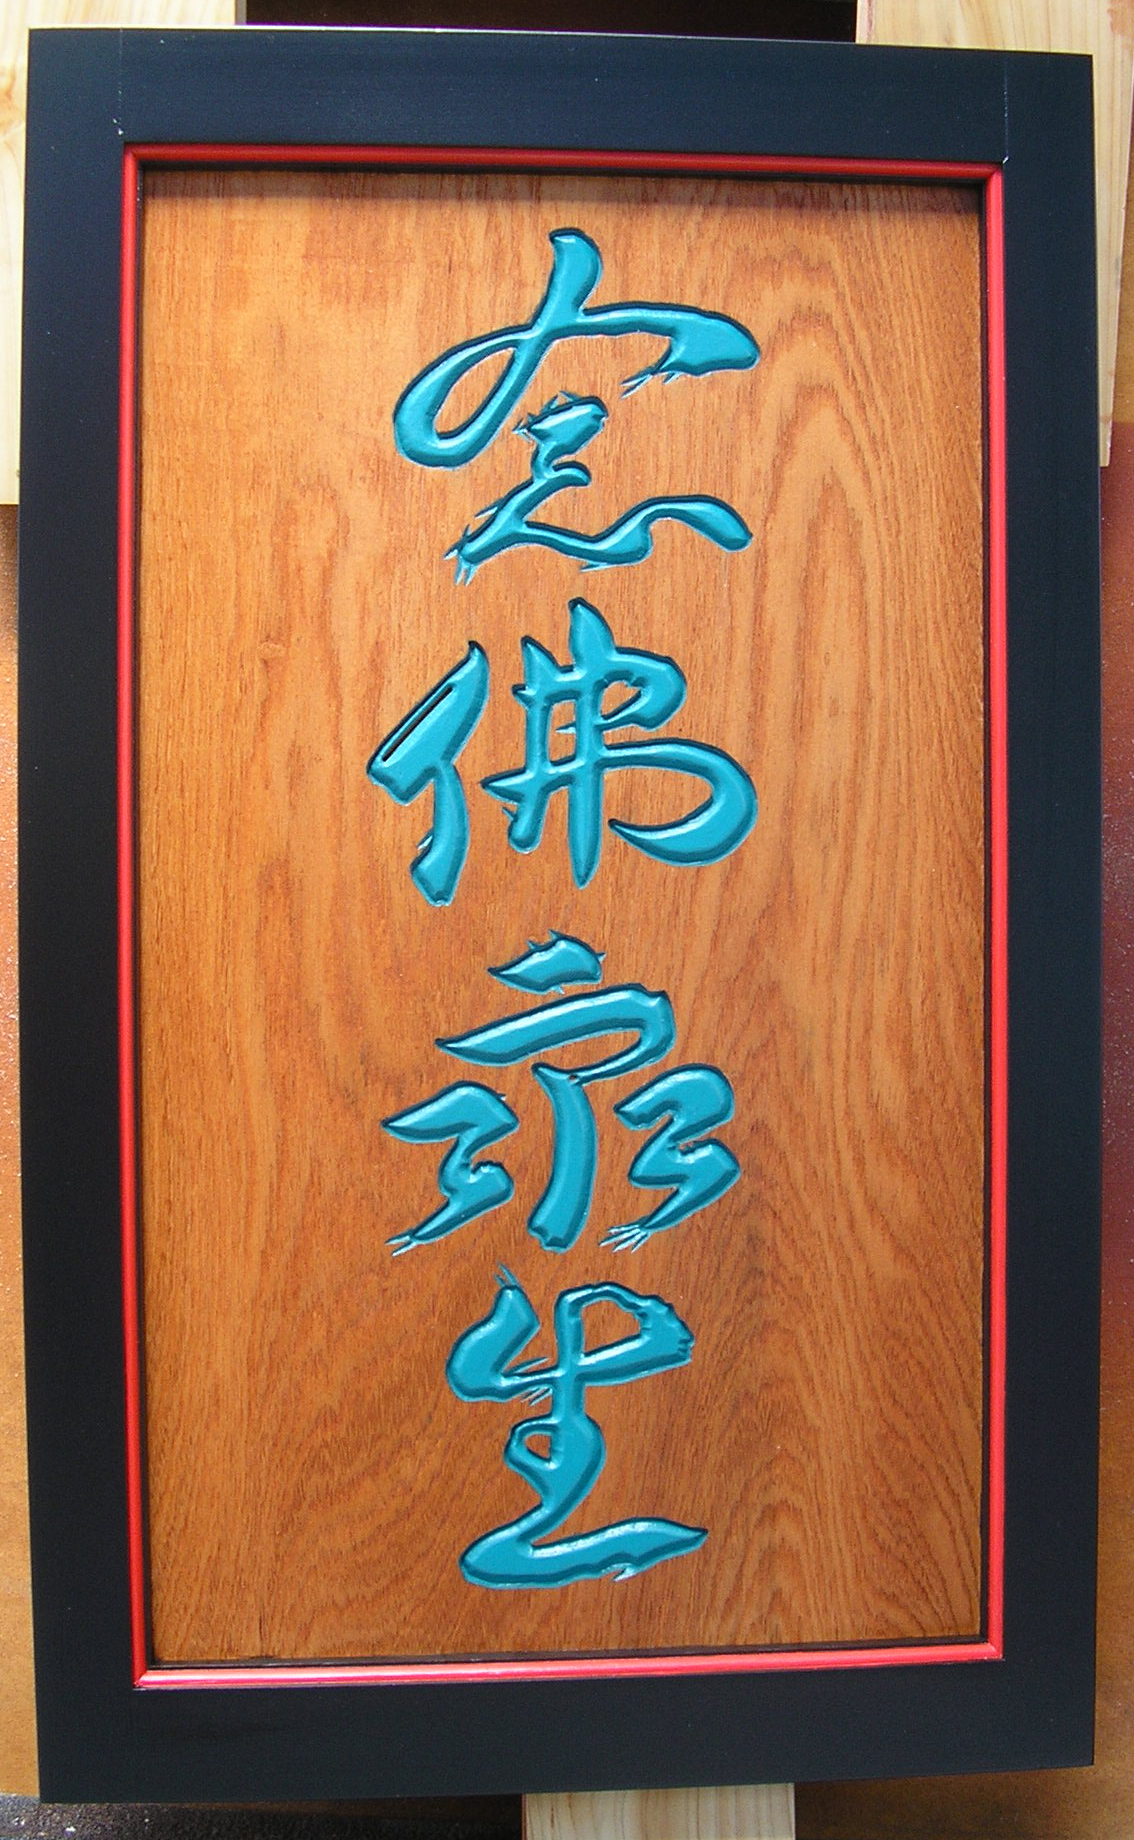 念佛衆生